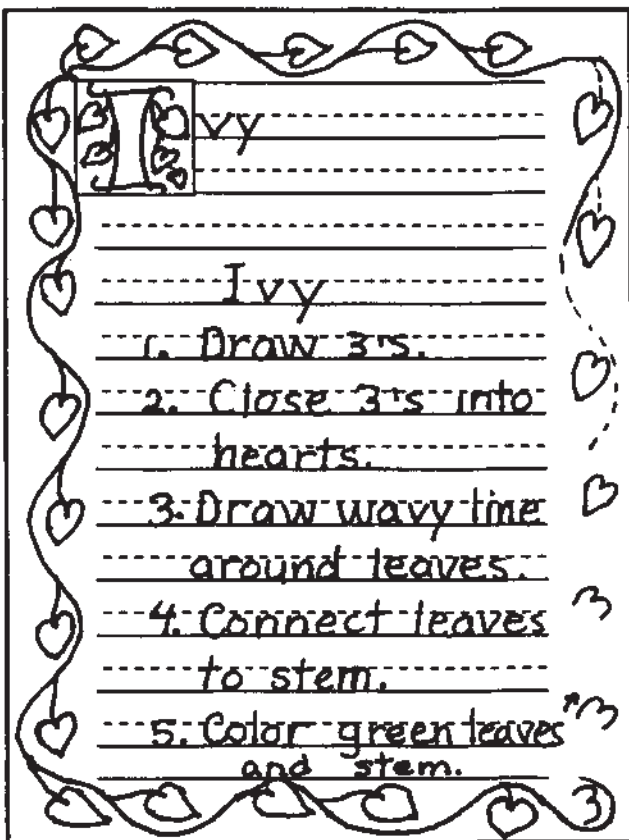 Ivy
Ivy
1. Draw 3's.
2. Close 3's into
hearts.
3. Draw wavy line
around leaves.
4. Connect leaves
to stem.
5. Color green leaves
and stem.
3